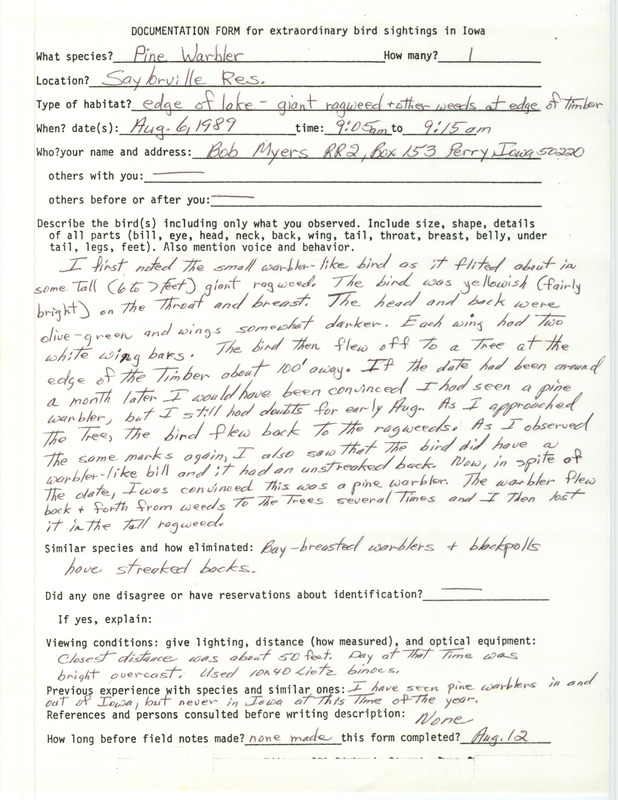 DOCUMENTATION FORM for extraordinary bird sightings in Iowa
What species? Pine Warbler How many? 1
Location? Saylorville Res.
Type of habitat? edge of lake - giant ragweed + other weeds at edge of timber
When? date(s): Aug. 6, 1989 time: 9:05am to 9:15 am
Who?your name and address: Bob Myers RR2, Box 153 Perry, Iowa 50220
others with you:
others before or after you:
Describe the bird(s) including only what you observed. Include size, shape, details
of all parts (bill, eye, head, neck, back, wing, tail, throat, breast, belly, under
tail, legs, feet). Also mention voice and behavior.
I first noted the small warbler-like bird as it flited about in
some tall (6 to 7 feet) giant ragweeds. The bird was yellowish (fairly
bright) on the throat and breast. The head and back were
olive-green and wings somewhat darker. Each wing had two
white wing bars. The bird then flew off to a tree at the
edge of the timber about 100' away. If the date had been around
a month later I would have been convinced I had seen a pine
warbler, but I still had doubts for early Aug. As I approached
the tree, the bird flew back to the ragweeds. As I observed
the same marks again, I also saw that the bird did have a
warbler-like bill and it had an unstreaked back. Now, in spite of
the date, I was convinced this was a pine warbler. The warbler flew
back + forth from weeds to the trees several times and I then lost
it in the tall ragweed.
Similar species and how eliminated: Bay-breasted warblers + blackpolls
have streaked backs.
Did any one disagree or have reservations about identification?
If yes, explain:
Viewing conditions: give lighting, distance (how measured), and optical equipment:
Closest distance was about 50 feet. Day at that time was
bright overcast. Used 10x40 Lietz binocs.
Previous experience with species and similar ones: I have seen pine warblers in and
out of Iowa, but never in Iowa at this time of the year.
References and persons consulted before writing description: None
How long before field notes made? none made this form completed? Aug. 12